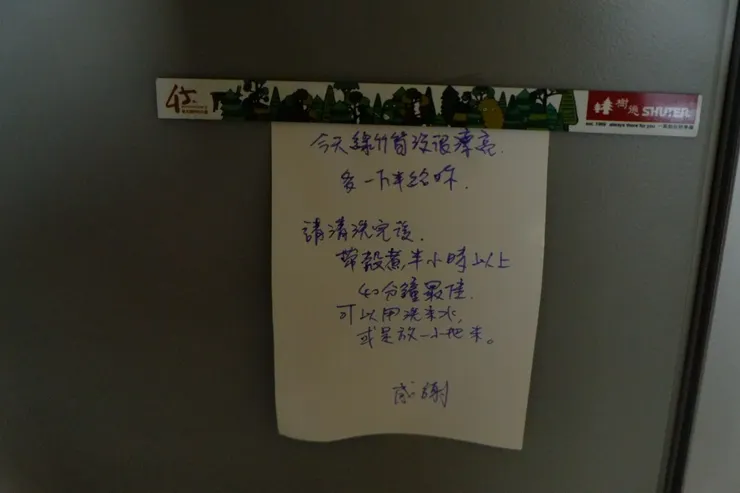 45
樹德 SHUTER
est. 1969 always there for you
今天綠竹筍沒很漂亮.
多一下半給你.
請清洗完後.
帶殼煮,半小時以上
40分鐘最佳.
可以用洗米水,
或是放一小把米。
感謝